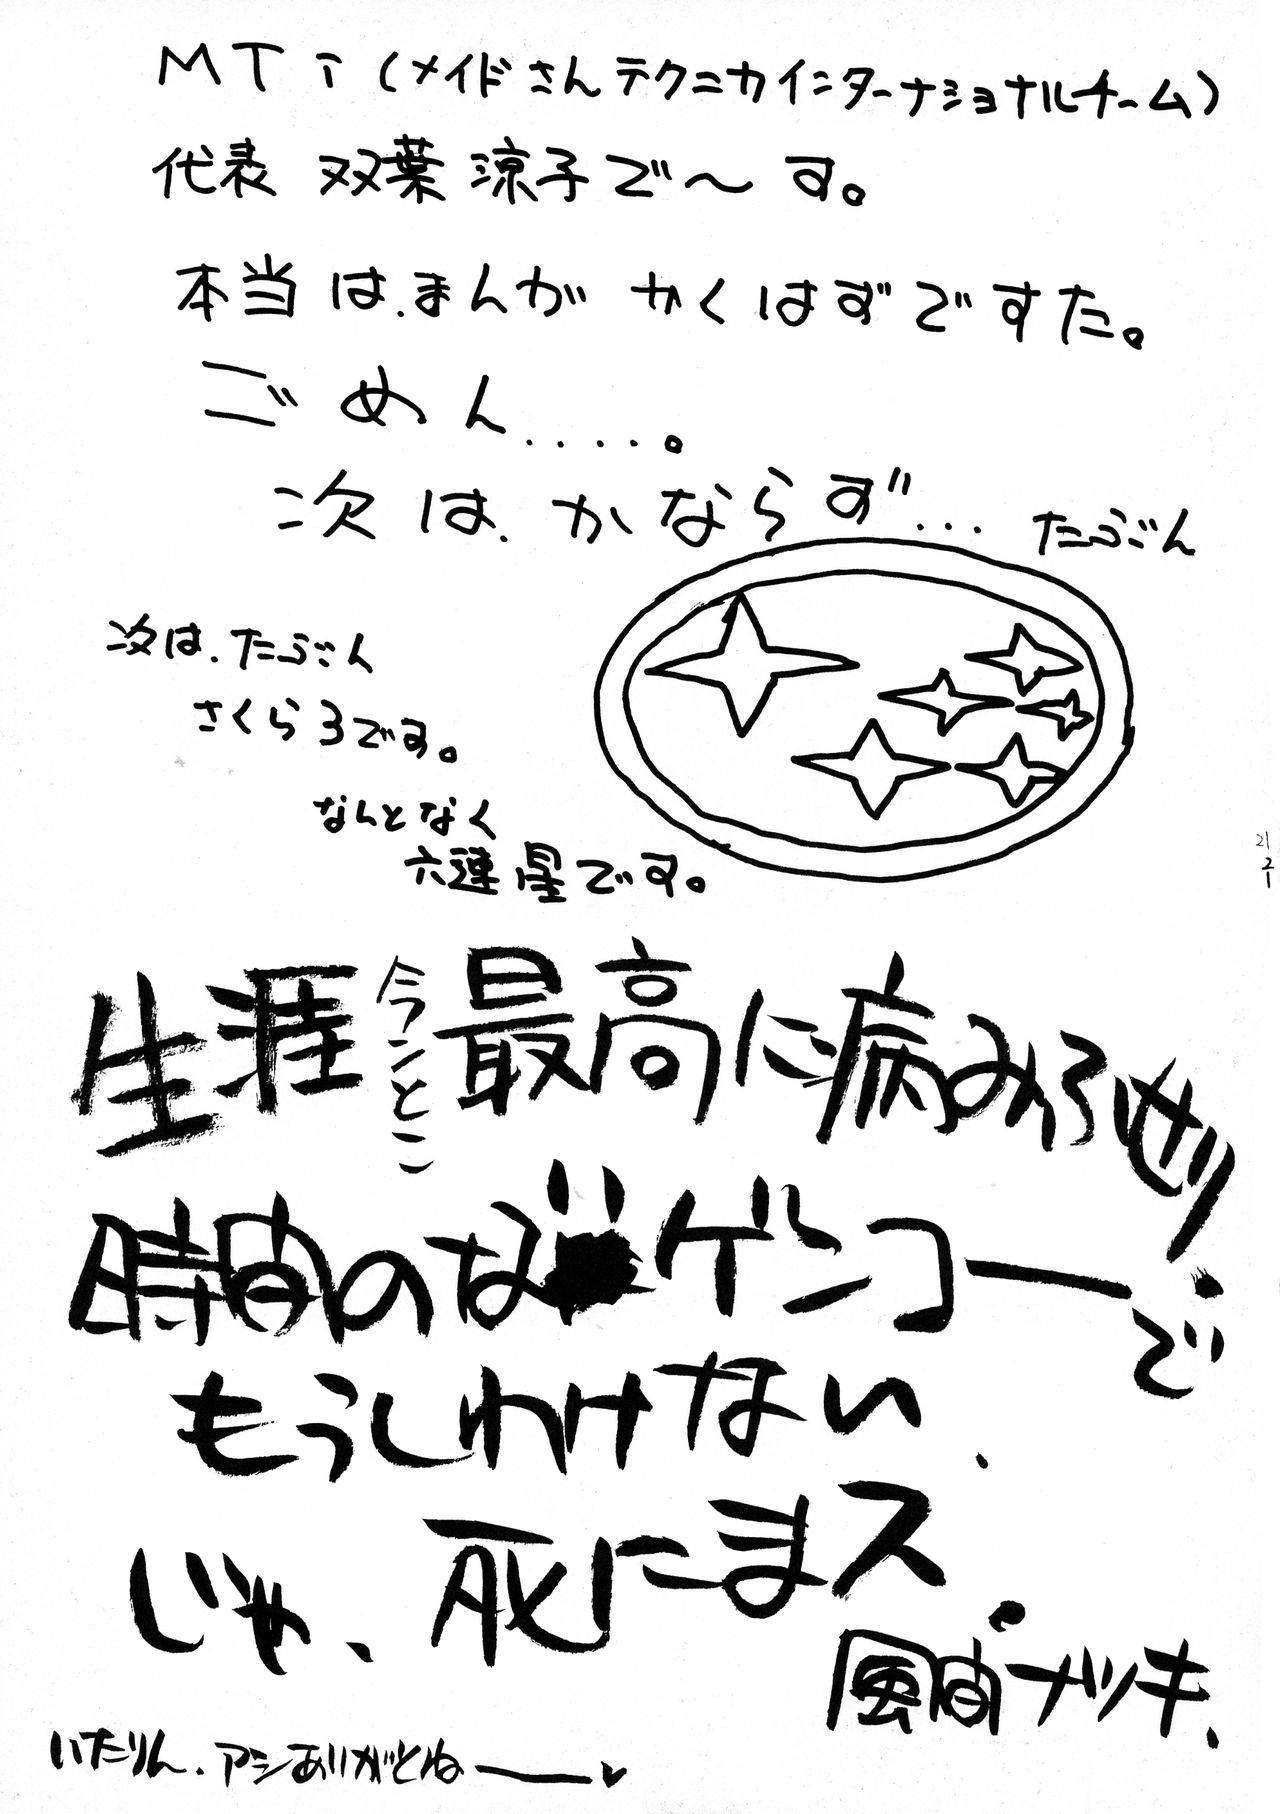 MTi(メイドさんテクニカインターナショナルチーム)
代表 双葉涼子で〜す。
本当は.まんがかくはずですた。
ごめん....。
次は.かならず... たぶん
次は.たぶん
さくら3です。
なんとなく
六連星です。
生涯今んとこ最高に病みろせり
時間のなゲンコーで
もうしわけない.
じゃ、死にまス.
風間ナツキ、
いたりん.アシありがとねー♥
21